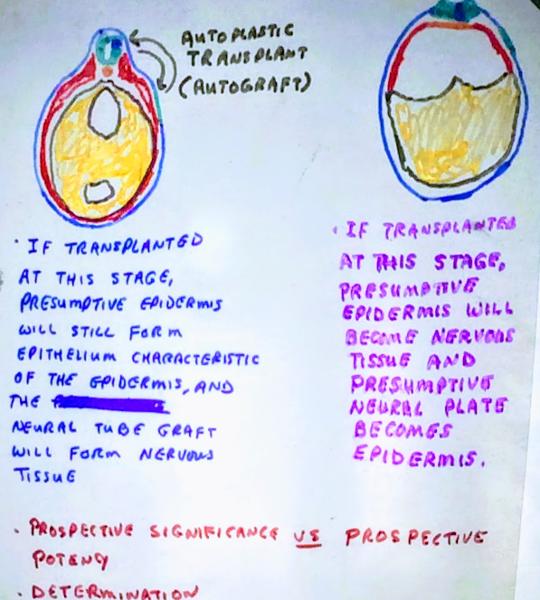 AUTOPLASTIC
TRANSPLANT
(AUTOGRAFT)
· IF TRANSPLANTED
AT THIS STAGE,
PRESUMPTIVE EPIDERMIS
WILL STILL FORM
EPITHELIUM CHARACTERISTIC
OF THE EPIDERMIS, AND
THE
NEURAL TUBE GRAFT
WILL FORM NERVOUS
TISSUE
· IF TRANSPLANTED
AT THIS STAGE,
PRESUMPTIVE
EPIDERMIS WILL
BECOME NERVOUS
TISSUE AND
PRESUMPTIVE
NEURAL PLATE
BECOMES
EPIDERMIS.
· PROSPECTIVE SIGNIFICANCE VS PROSPECTIVE
POTENCY
· DETERMINATION